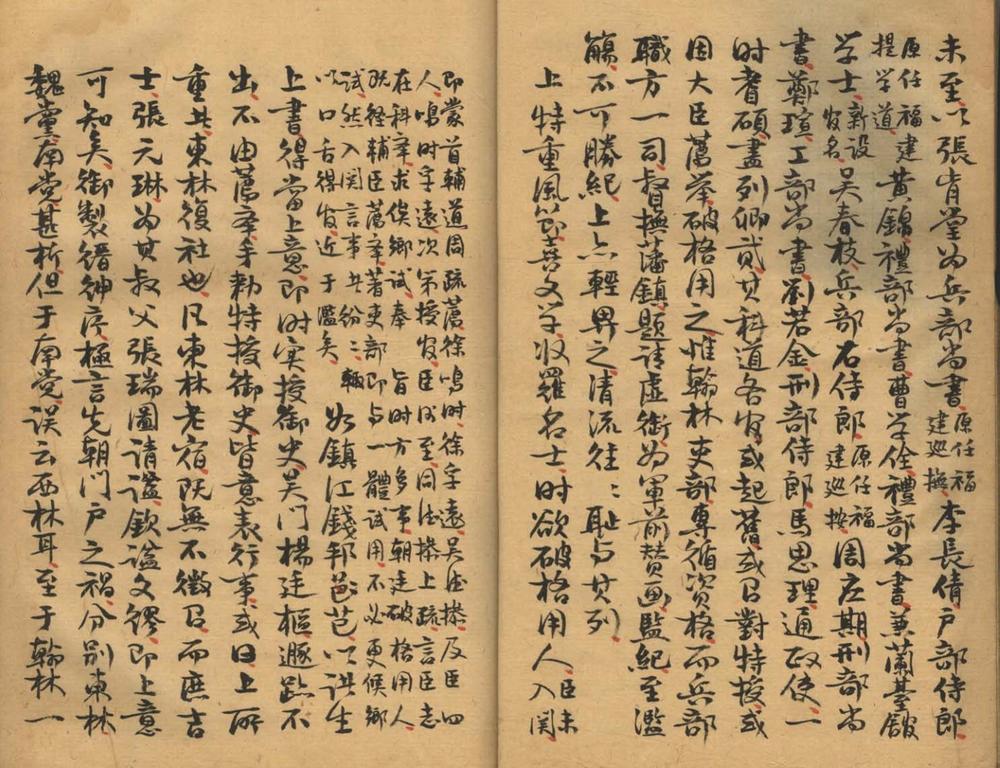 未至以張肯堂为兵部尚書原任福建巡撫李長倩户部侍郎
原任福建提學道黄錦禮部尚書曹学佺禮部尚書兼蘭臺館
学士新設官名吴春枝兵部右侍郎原任福建巡按周应期刑部尚
書鄭瑄工部尚書劉若金刑部侍郎馬思理通政使一
时耆碩盡列卿貳其科道各官或起舊或召對特授或
因大臣薦举破格用之惟翰林吏部專循資格而兵部
職方一司督撫藩鎮題請虛銜为軍前赞画監紀至濫
觴不可勝紀上亦輕畀之清流往〻耻与其列
上特重風節喜文学收羅名士时欲破格用人臣未入関
即蒙首輔道周疏薦徐鳴时徐孚遠吴德操及臣四
人鳴时孚遠次第授官臣後至同德操上疏言臣志
在科举求俟鄉試奉旨时方多事朝廷破格用人
既经輔臣薦举著吏部即与一體試用不必更候鄉
試然入関言事其纷〻輒
以口舌得官近于濫矣
如鎮江錢邦芑以諸生
上書得當上意即时实授御史吴門楊廷樞遯跡不
出不由薦举手勅特授御史皆意表行事或曰上所
重其東林復社也凡東林老宿既無不徵召而庶吉
士張元琳为其叔父張瑞圖請謚欽謚文繆即上意
可知矣御製縉紳序極言先朝門户之禍分别東林
魏黨南党甚析但于南党误云西林耳至于翰林一